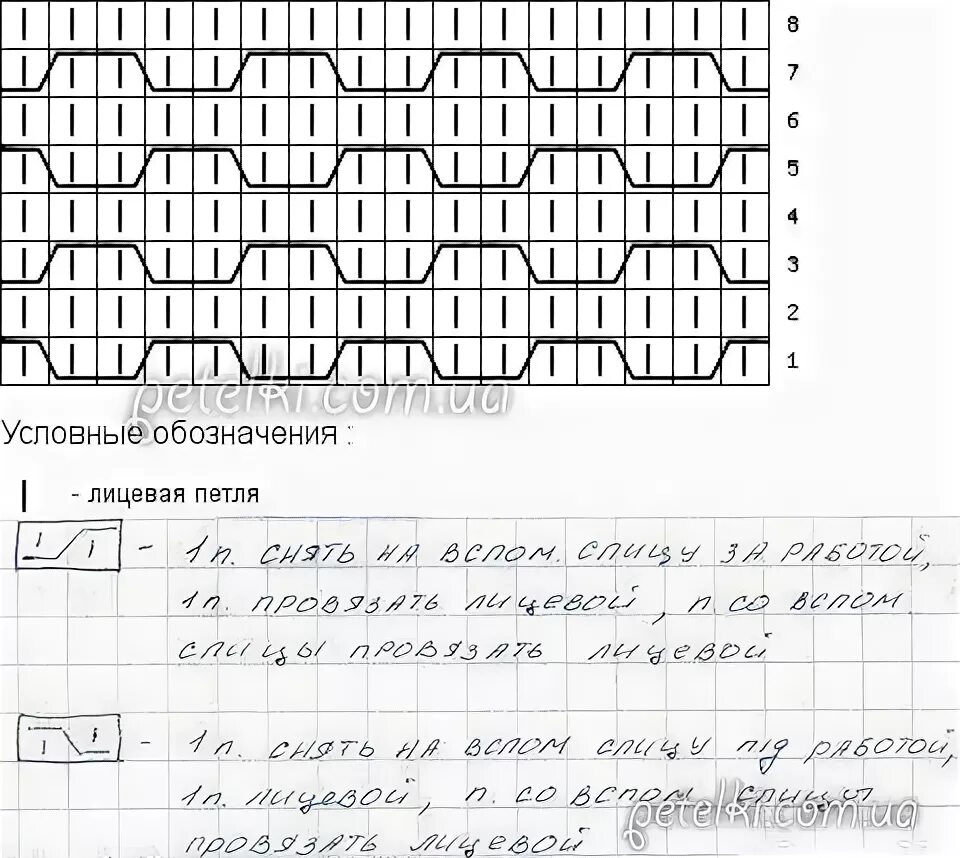 8
7
6
5
4
3
2
1
petelki.com.ua
Условные обозначения :
| - лицевая петля
- 1 п. снять на вспом. спицу за работой,
1 п. провязать лицевой, п. со вспом.
спицы провязать лицевой
- 1 п. снять на вспом спицу під работой,
1 п. лицевой, п. со вспом спицы
petelki.com.ua
провязать лицевой